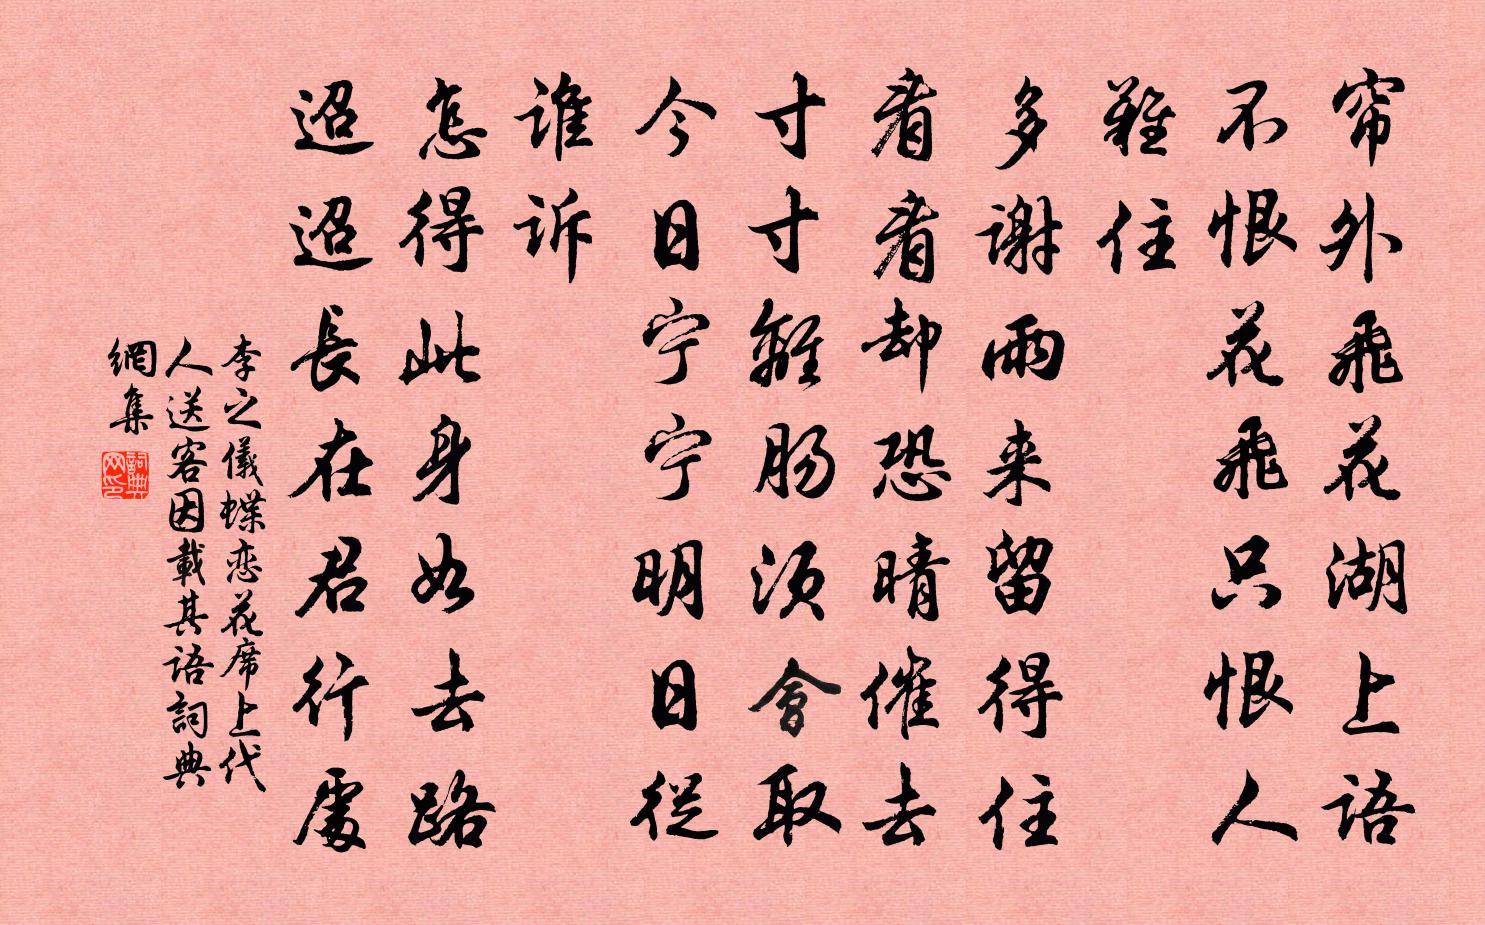 帘外飛花湖上語
不恨花飛只恨人
難住
多謝雨来留得住
看看却恐晴催去
寸寸離肠須會取
今日宁宁明日從
誰訴
怎得此身如去路
迢迢長在君行處
李之儀蝶恋花席上代
人送客因載其語詞典
網集
詞典网印